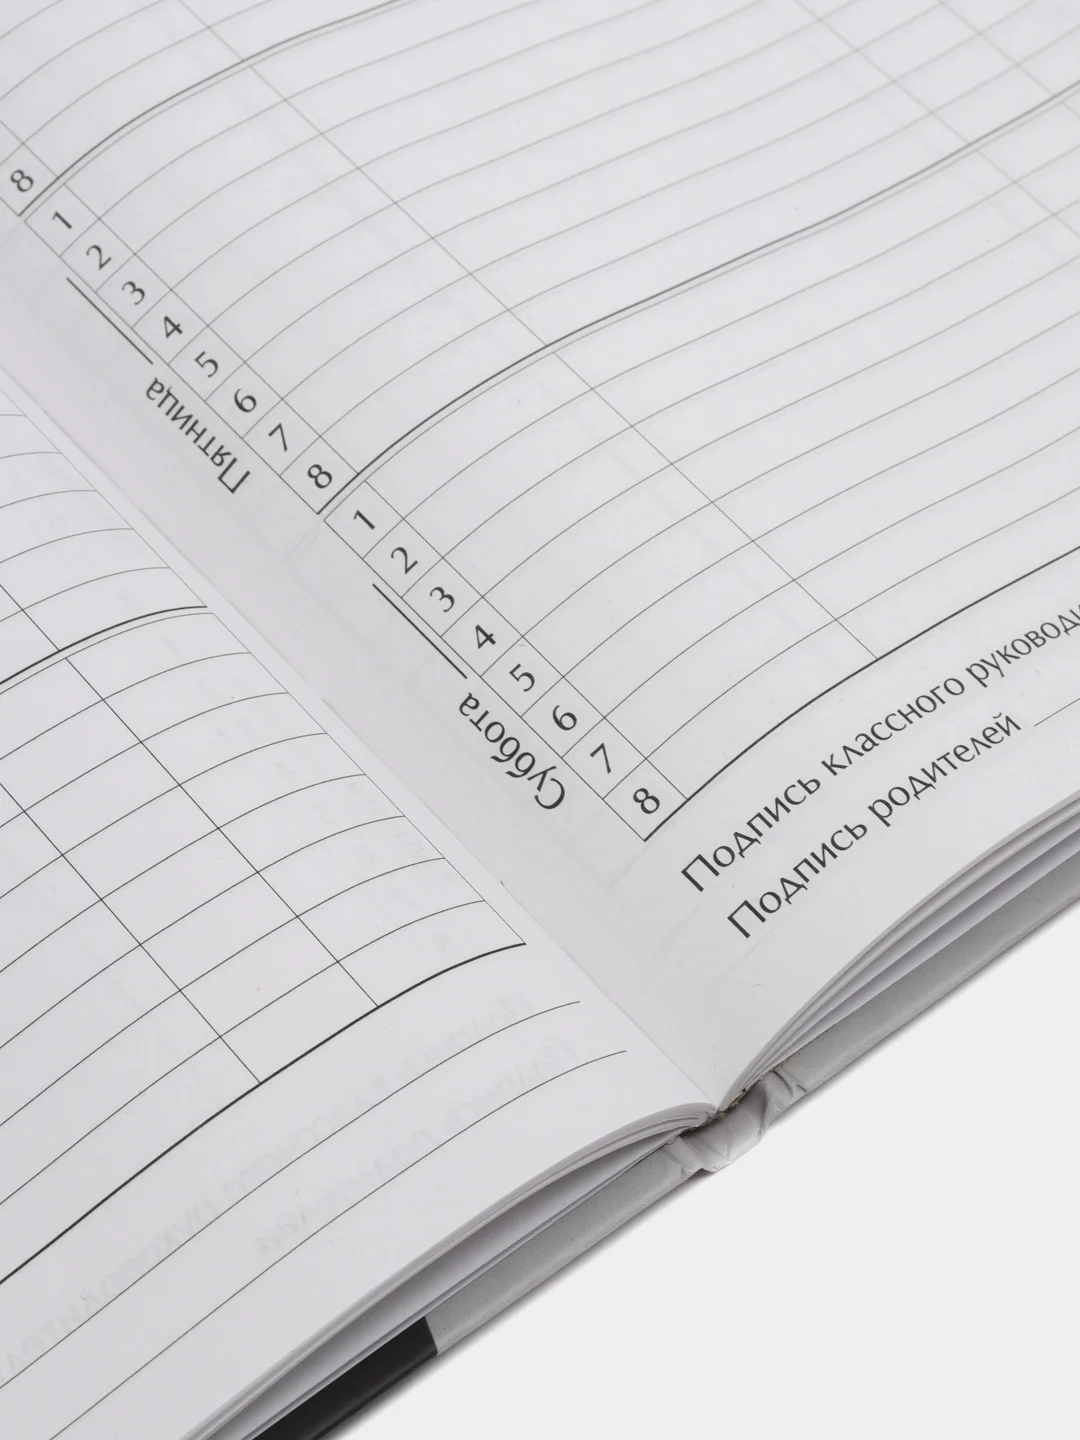 8
Пятница
1
2
3
4
5
6
7
8
Суббота
1
2
3
4
5
6
7
8
Подпись классного
Подпись родителей